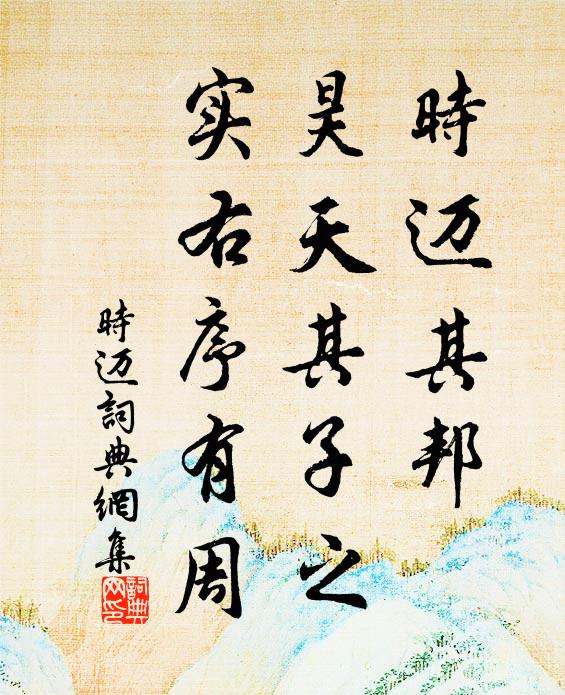 時迈其邦
昊天其子之
实右序有周
時迈詞典網集
詞典
网印